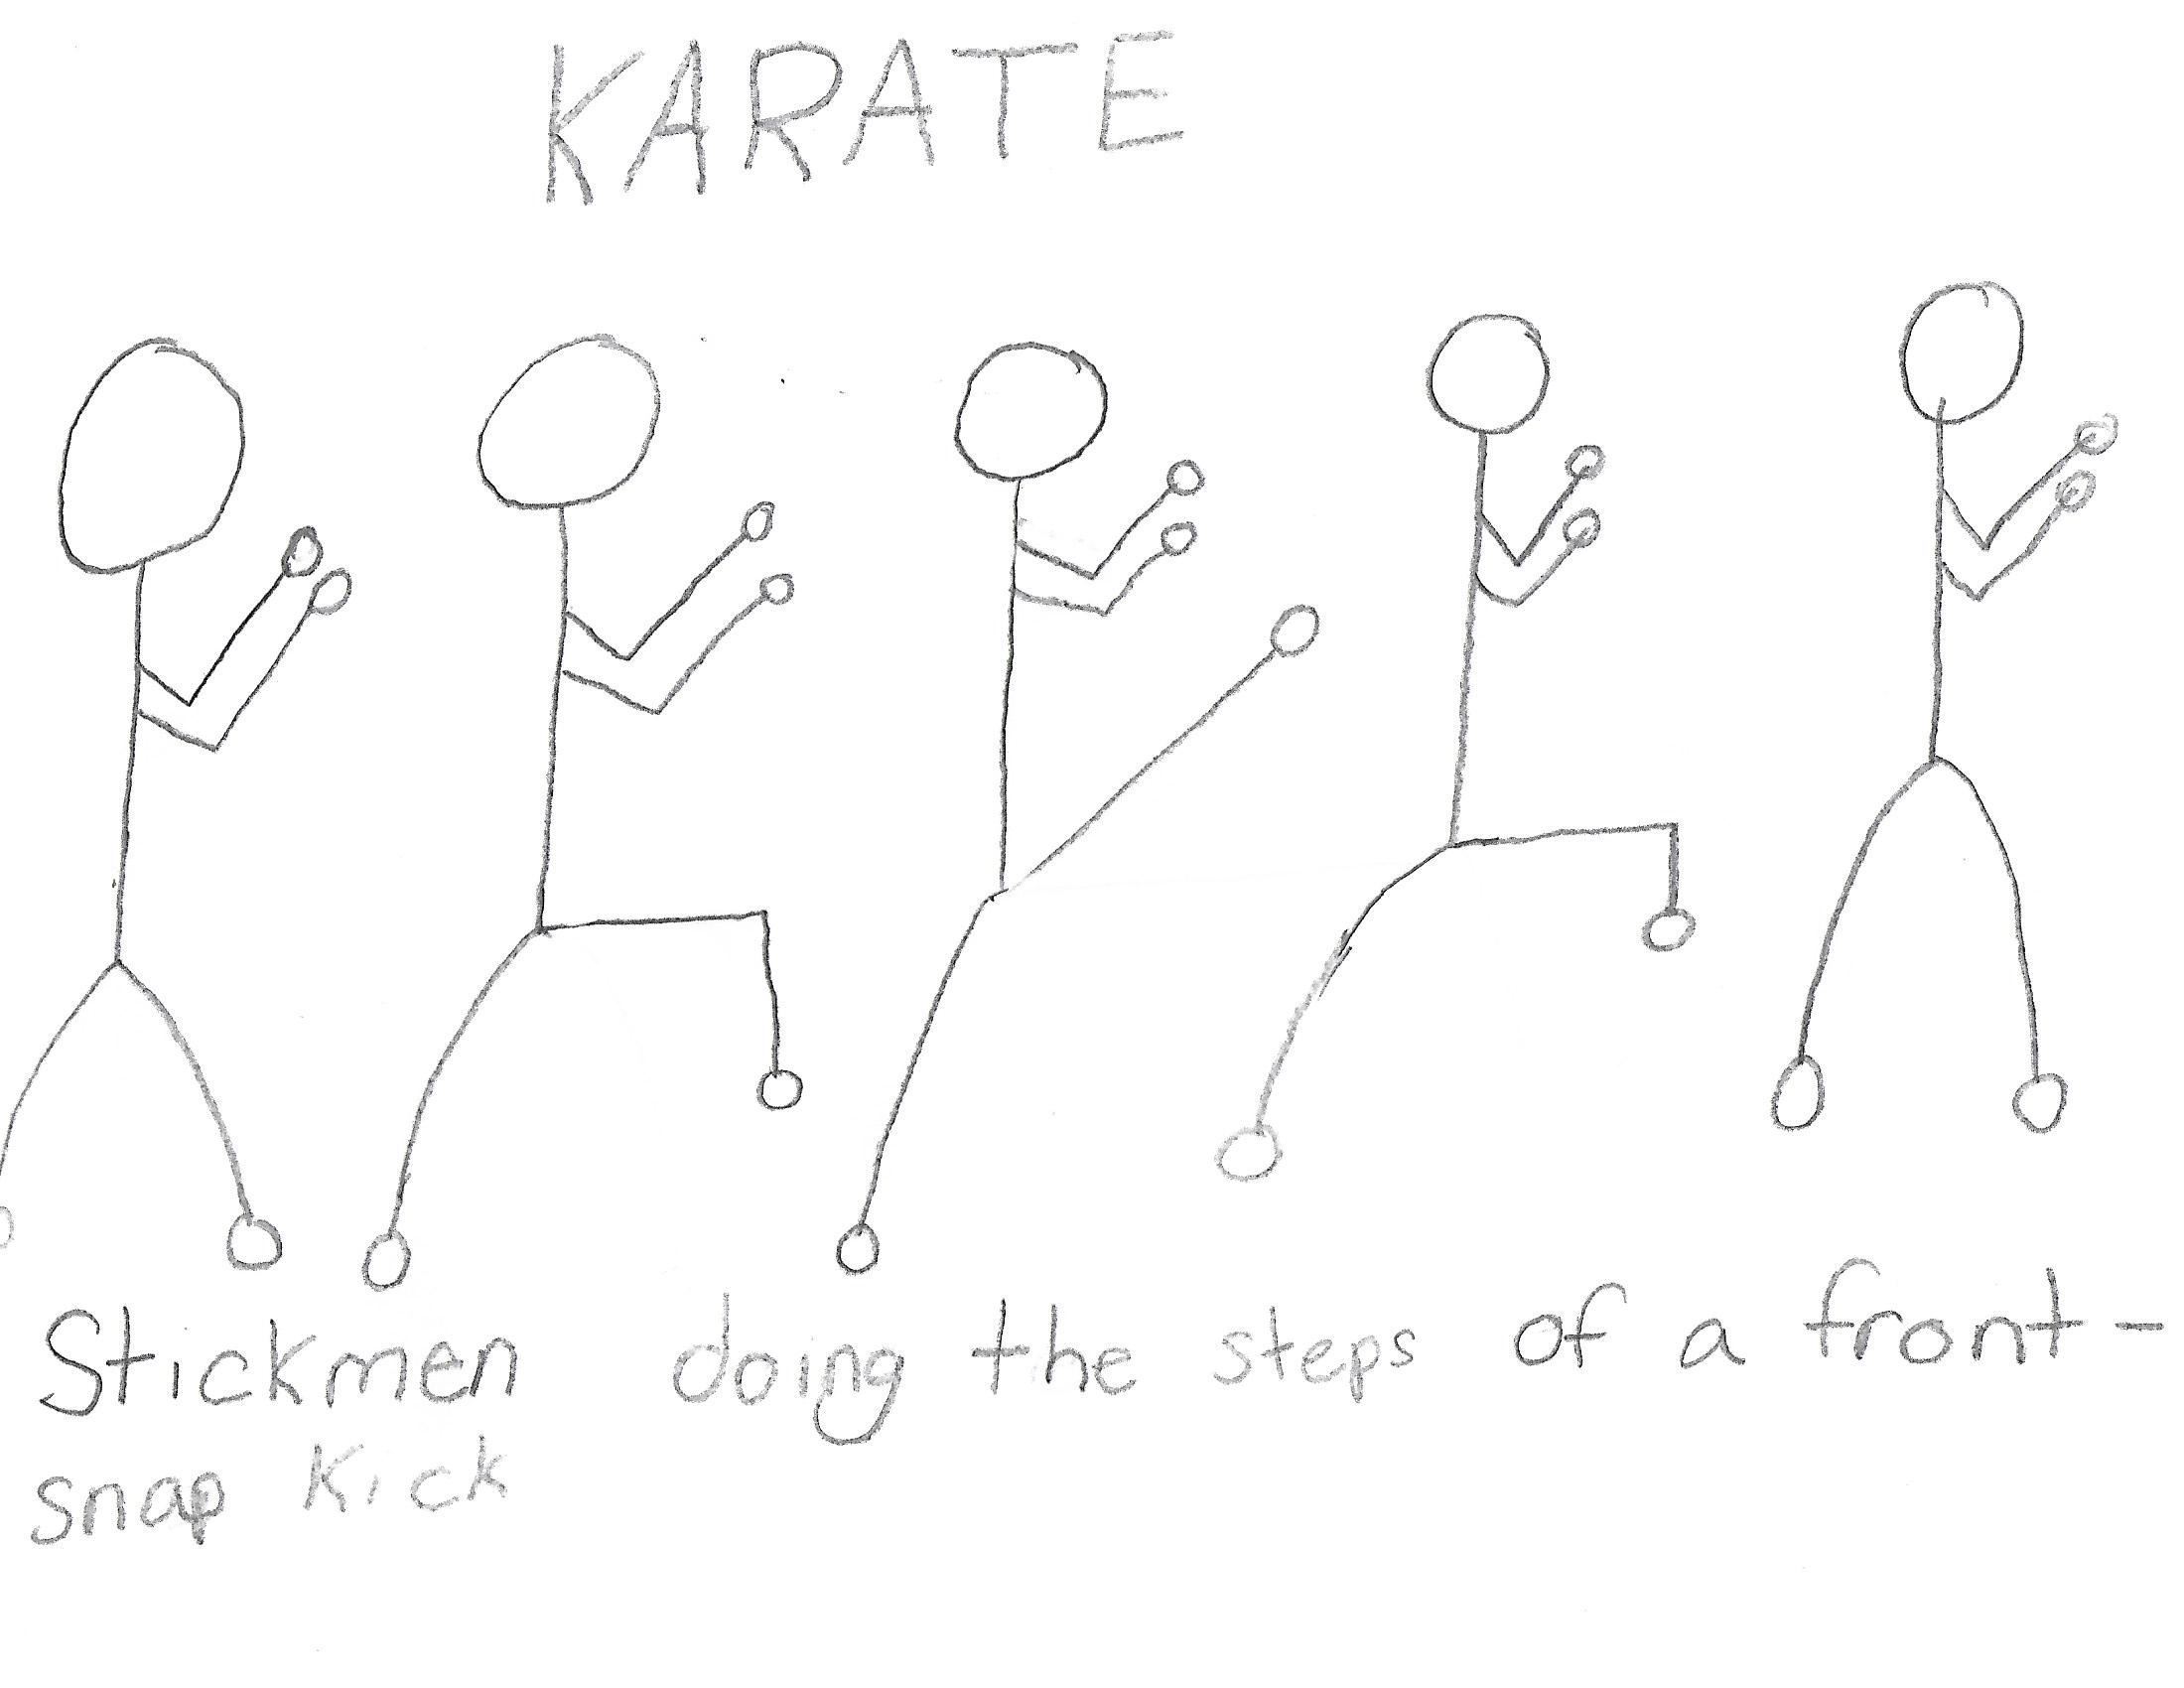 KARATE
Stickmen doing the steps of a front-
snap Kick